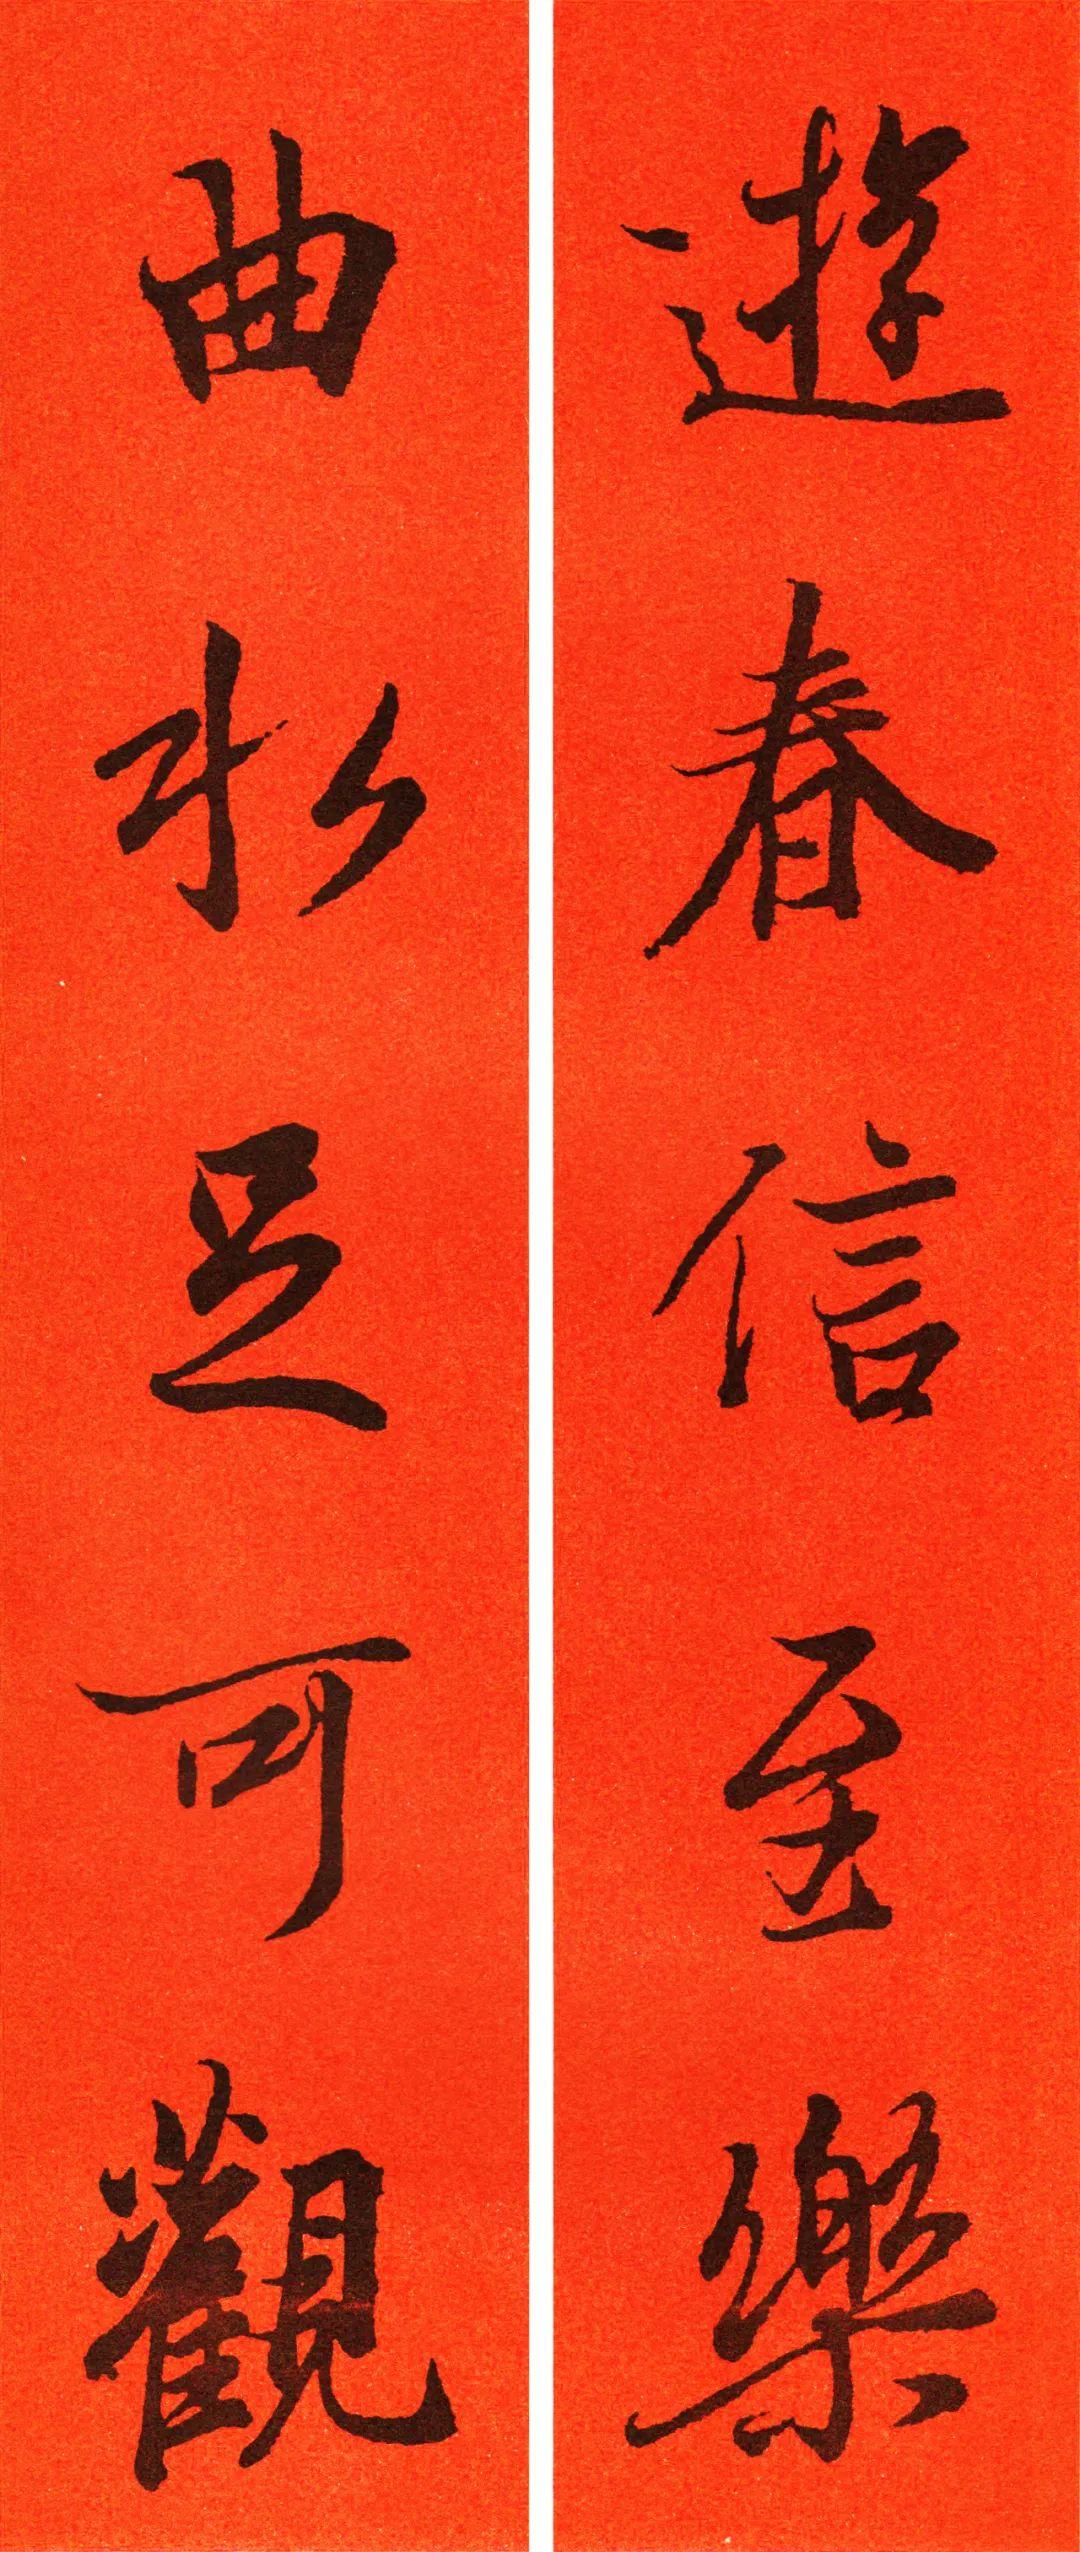 遊春信至樂
曲水足可觀